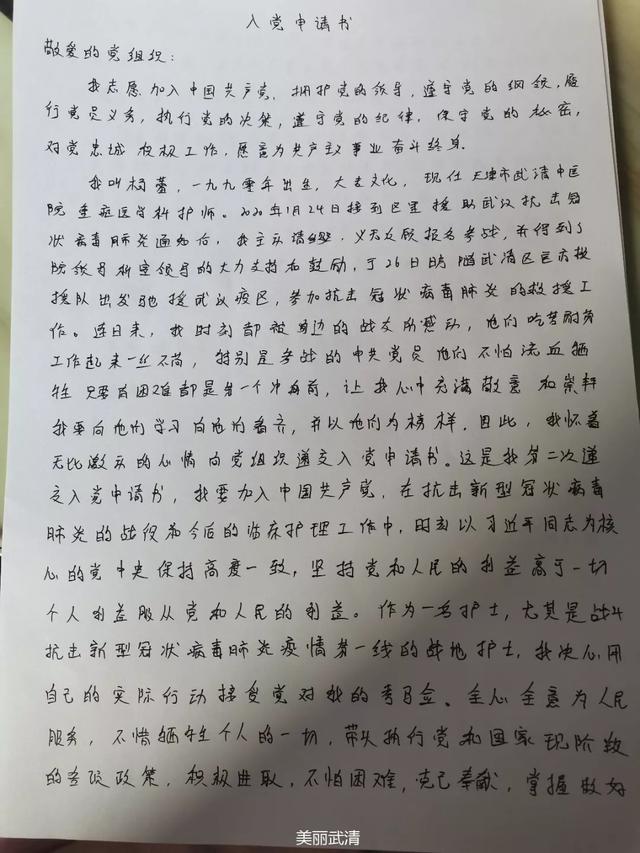 入党申请书
敬爱的党组织：
我志愿加入中国共产党，拥护党的领导，遵守党的纲领，履
行党员义务，执行党的决策，遵守党的纪律，保守党的秘密，
对党忠诚 积极工作，愿意为共产主义事业奋斗终身。
我叫杨蕾，一九九零年出生，大专文化，现任天津市武清中医
院重症医学科护师。2020年1月24日接到区里援助武汉抗击冠
状病毒肺炎通知后，我主动请缨，义无反顾报名参战，并得到了
院领导科室领导的大力支持和鼓励，于26日随武清区医疗救
援队出发驰援武汉疫区，参加抗击冠状病毒肺炎的救援工
作。连日来，我时刻都被身边的战友所感动，他们吃苦耐劳
工作起来一丝不苟，特别是参战的中共党员他们不怕流血牺
牲 只要有困难都是第一个冲在前，让我心中充满敬意和崇拜
我要向他们学习向他们看齐，并以他们为榜样，因此，我怀着
无比激动的心情向党组织递交入党申请书。这是我第二次递
交入党申请书，我要加入中国共产党，在抗击新型冠状病毒
肺炎的战役和今后的临床护理工作中，时刻以习近平同志为核
心的党中央保持高度一致，坚持党和人民的利益高于一切
个人利益服从党和人民的利益。作为一名护士，尤其是战斗
抗击新型冠状病毒肺炎疫情第一线的战地护士，我决心用
自己的实际行动接受党对我的考验。全心全意为人民
服务，不惜牺牲个人的一切，带头执行党和国家现阶段
的各项政策，积极进取，不怕困难，克己奉献，掌握做好
美丽武清